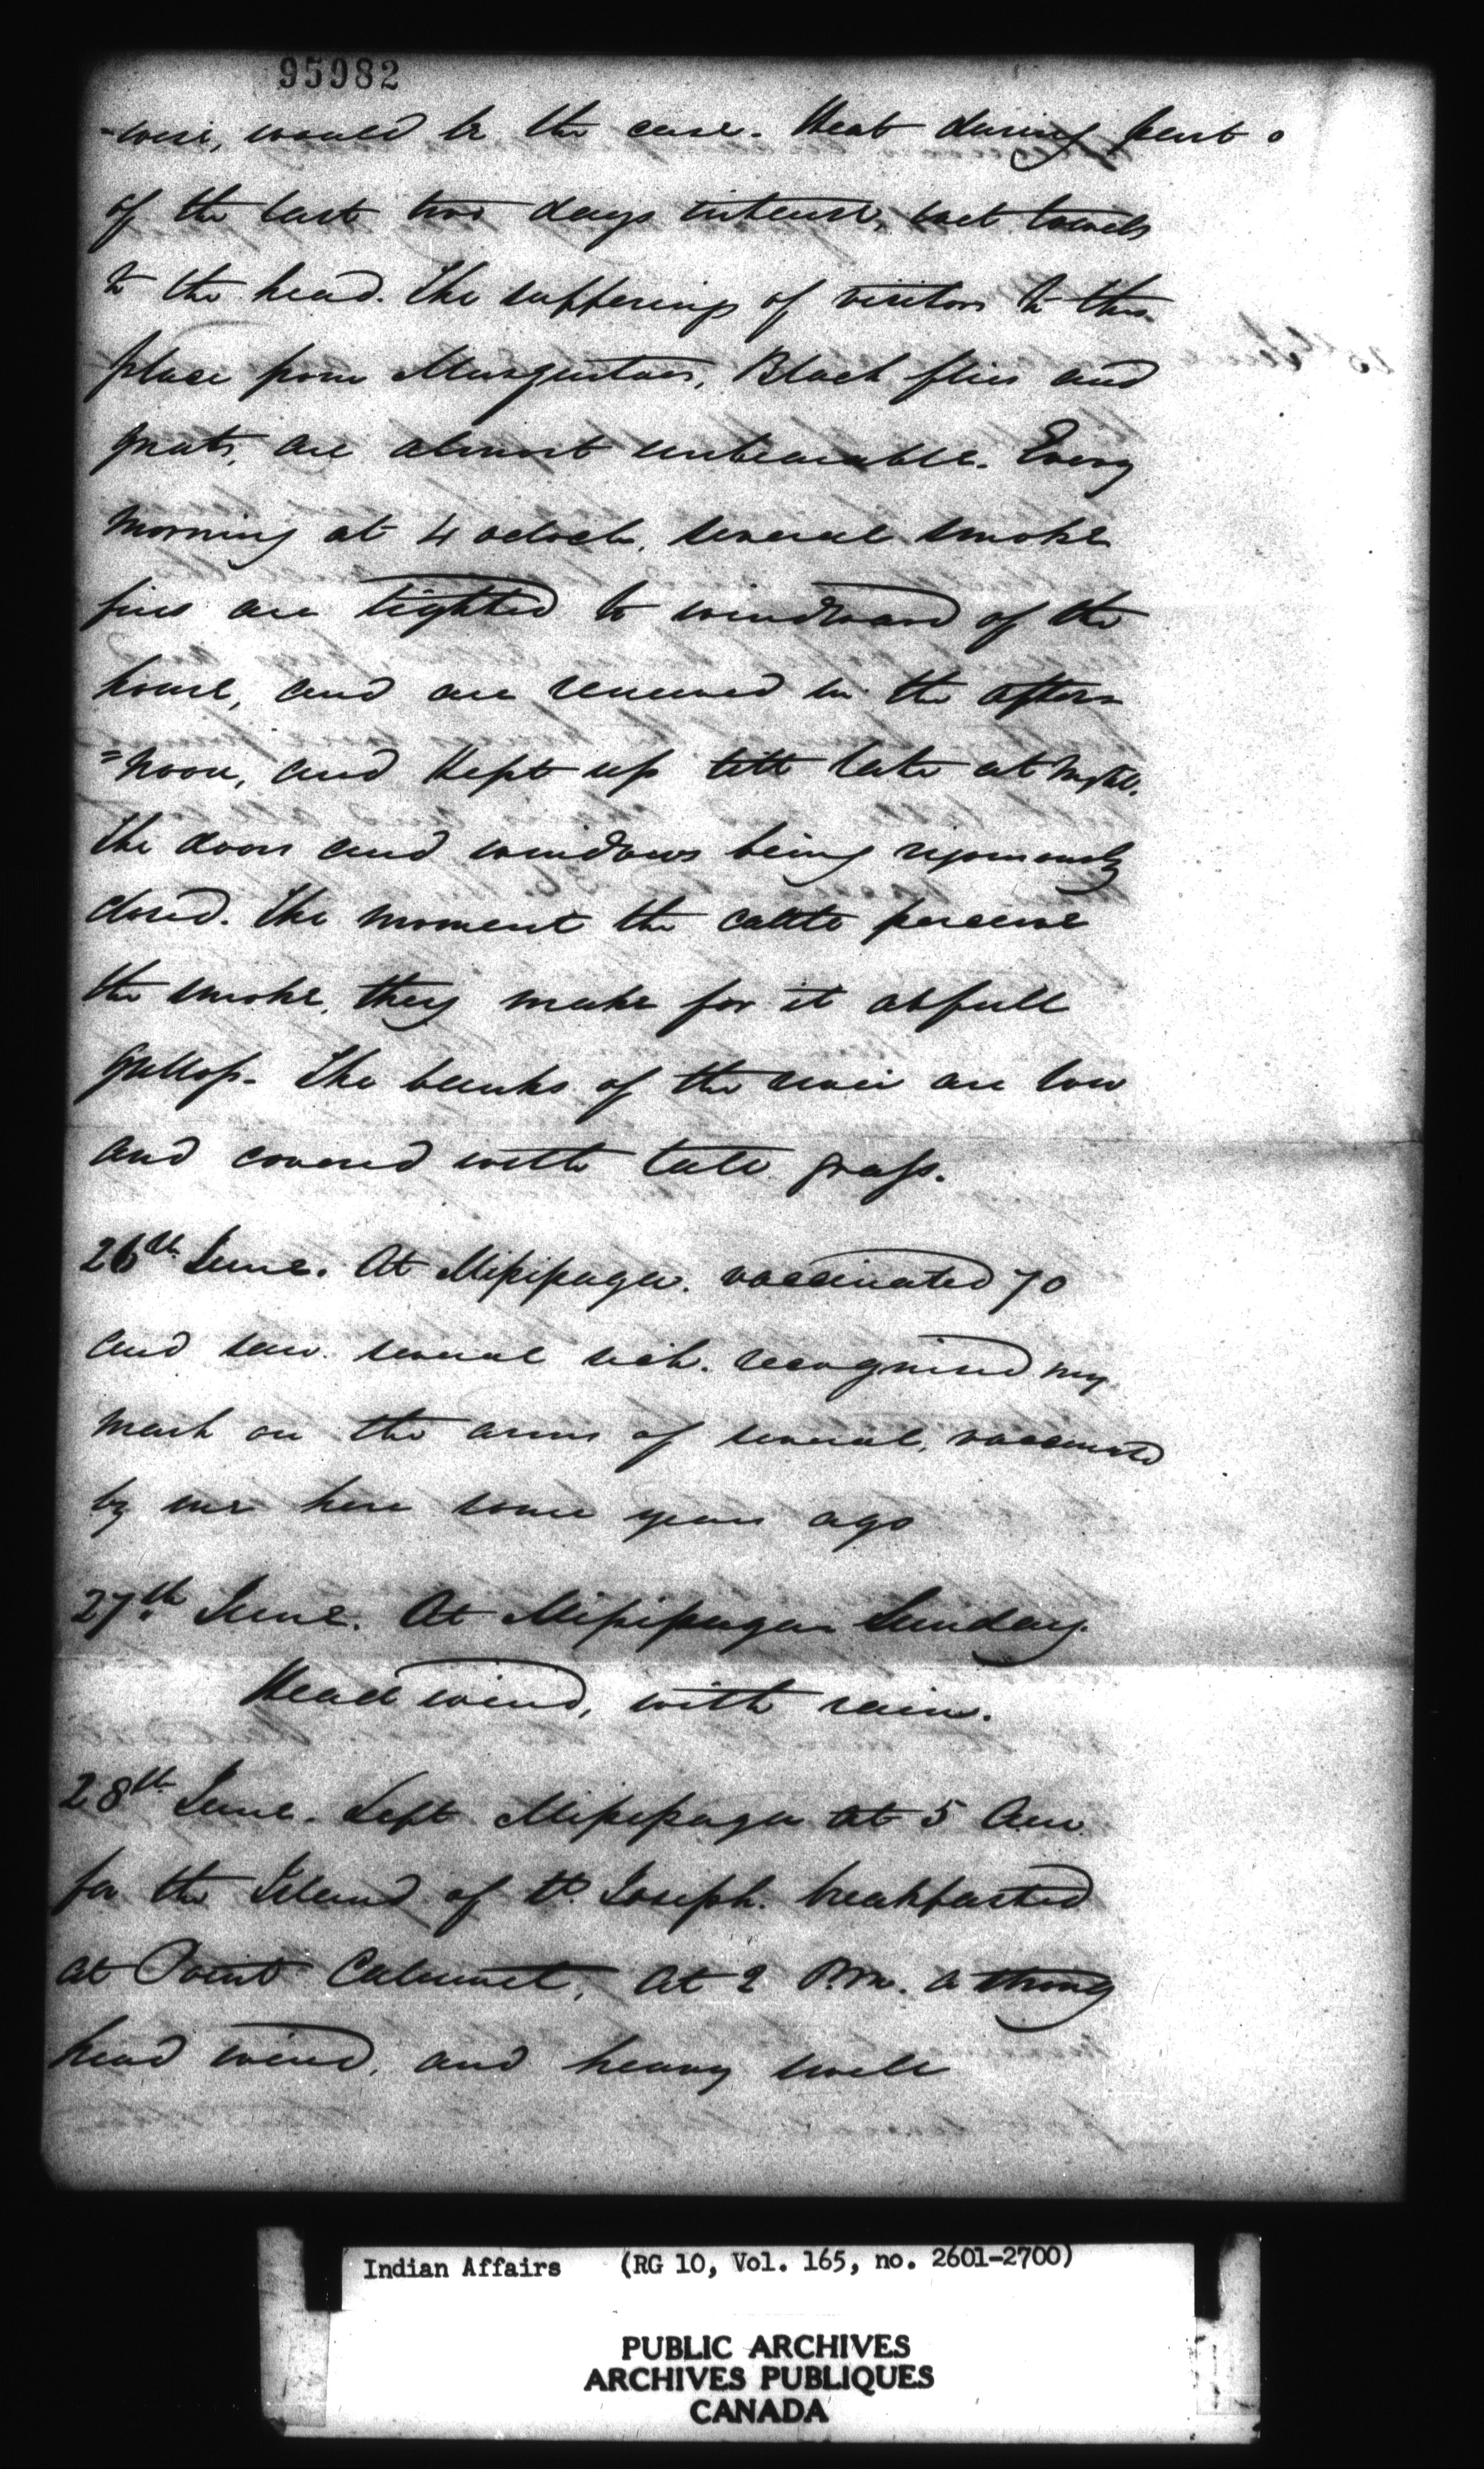 95982
-wise, would be the case. Heat during part
of the last two days intense, wet towels
to the head. The sufferings of visitors to this
place from Musquitoes, Black flies and
gnats, are almost unbearable. Every
morning at 4 oclock, several smoke
fires are lighted to windward of the
house, and are renewed in the after=
=noon, and kept up till late at night.
the doors and windows being rigorously
closed. The moment the cattle perceive
the smoke, they make for it at full
gallop. The banks of the river are low
and covered with tall grass.
26th June. At Missisaga. vaccinated 70
and saw several sick. recognised my
mark on the arms of several, vaccinated
by me here some years ago
27th June. At Missisaga Sunday.
Head wind, with rain.
28th June. Left Missisaga at 5 am
for the Island of St. Joseph. breakfasted
at Point Calumet, At 2 P.m. a strong
head wind, and heavy swell
Indian Affairs (RG 10, Vol. 165, no. 2601-2700)
PUBLIC ARCHIVES
ARCHIVES PUBLIQUES
CANADA